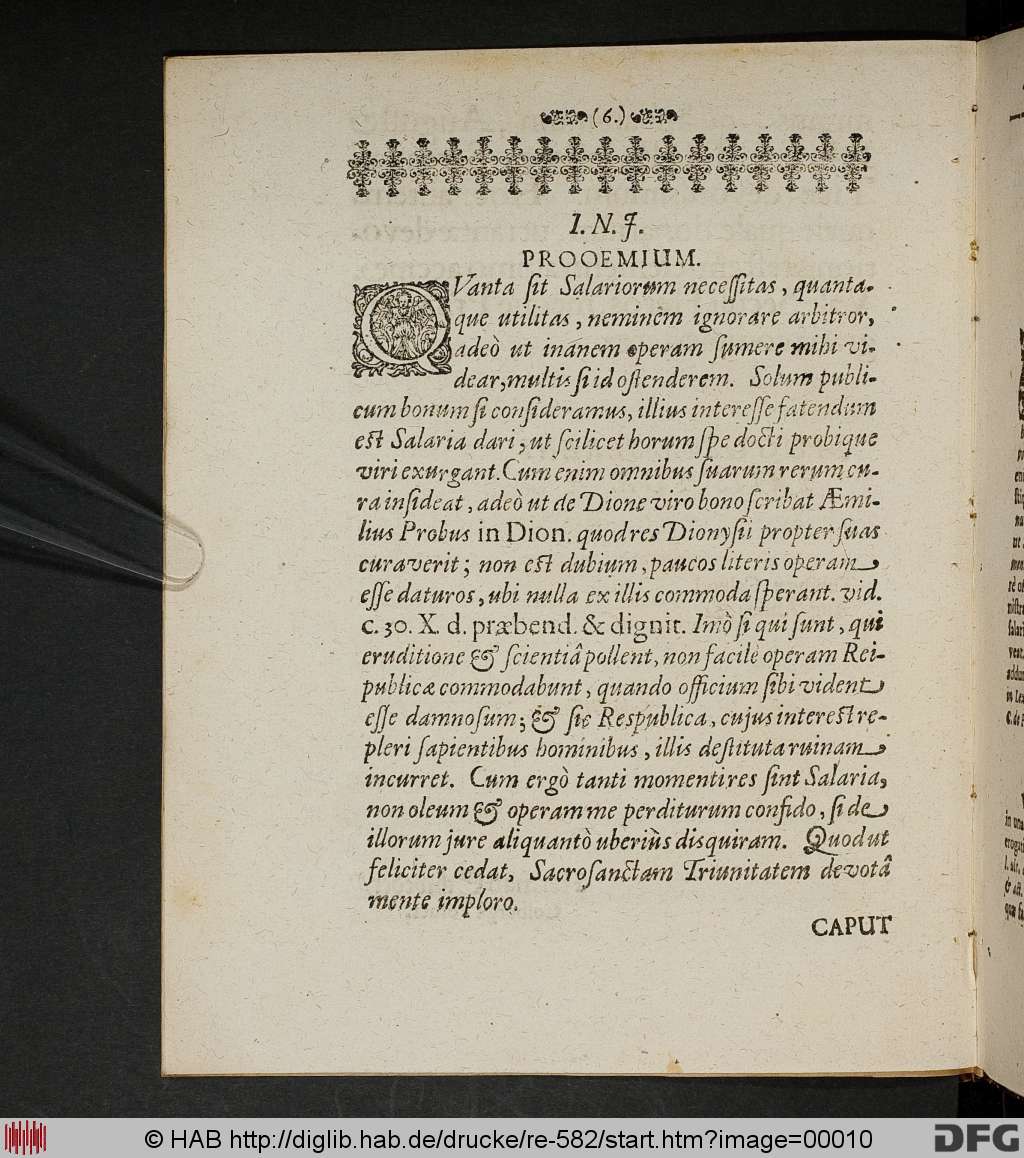 (6.)
I. N. J.
PROOEMIUM.
QVanta sit Salariorum necessitas, quanta-
que utilitas, neminem ignorare arbitror,
adeò ut inanem operam sumere mihi vi-
dear, multis si id ostenderem. Solum publi-
cum bonum si consideramus, illius interesse fatendum
est Salaria dari, ut scilicet horum spe docti probique
viri exurgant. Cum enim omnibus suarum rerum cu-
ra insideat, adeò ut de Dione viro bono scribat Æmi-
lius Probus in Dion. quod res Dionysii propter suas
curaverit; non est dubium, paucos literis operam
esse daturos, ubi nulla ex illis commoda sperant. vid.
c. 30. X. d. præbend. & dignit. Imò si qui sunt, qui
eruditione & scientiâ pollent, non facile operam Rei-
publicæ commodabunt, quando officium sibi vident
esse damnosum; & sic Respublica, cujus interest re-
pleri sapientibus hominibus, illis destituta ruinam
incurret. Cum ergò tanti momenti res sint Salaria,
non oleum & operam me perditurum confido, si de
illorum jure aliquantò uberiùs disquiram. Quod ut
feliciter cedat, Sacrosanctam Triunitatem devotâ
mente imploro.
CAPUT
© HAB http://diglib.hab.de/drucke/re-582/start.htm?image=00010
DFG